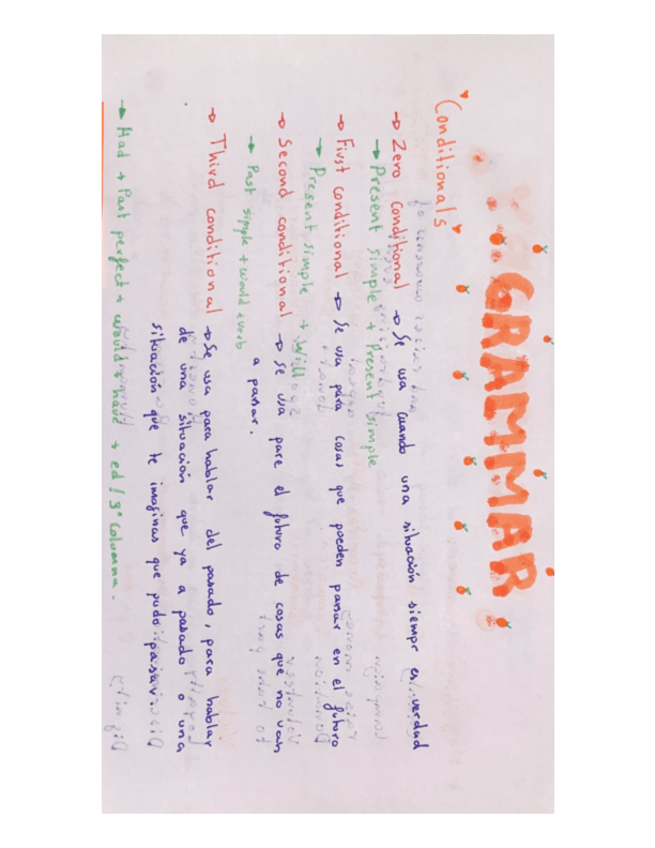 GRAMMAR
Conditionals
→ Zero conditional → Se usa cuando una situación siempr es verdad
→ Present simple + Present simple
→ First conditional → Se usa para cosas que pueden pasar en el futuro
→ Present simple + will
→ Second conditional → se usa para el futuro de cosas que no van
a pasar.
→ Past simple + would + verb
→ Third conditional → Se usa para hablar del pasado, para hablar
de una situación que ya a pasado o una
situación que te imaginas que pudo pasar
→ Had + Past perfect + would + have + ed / 3ª columna.